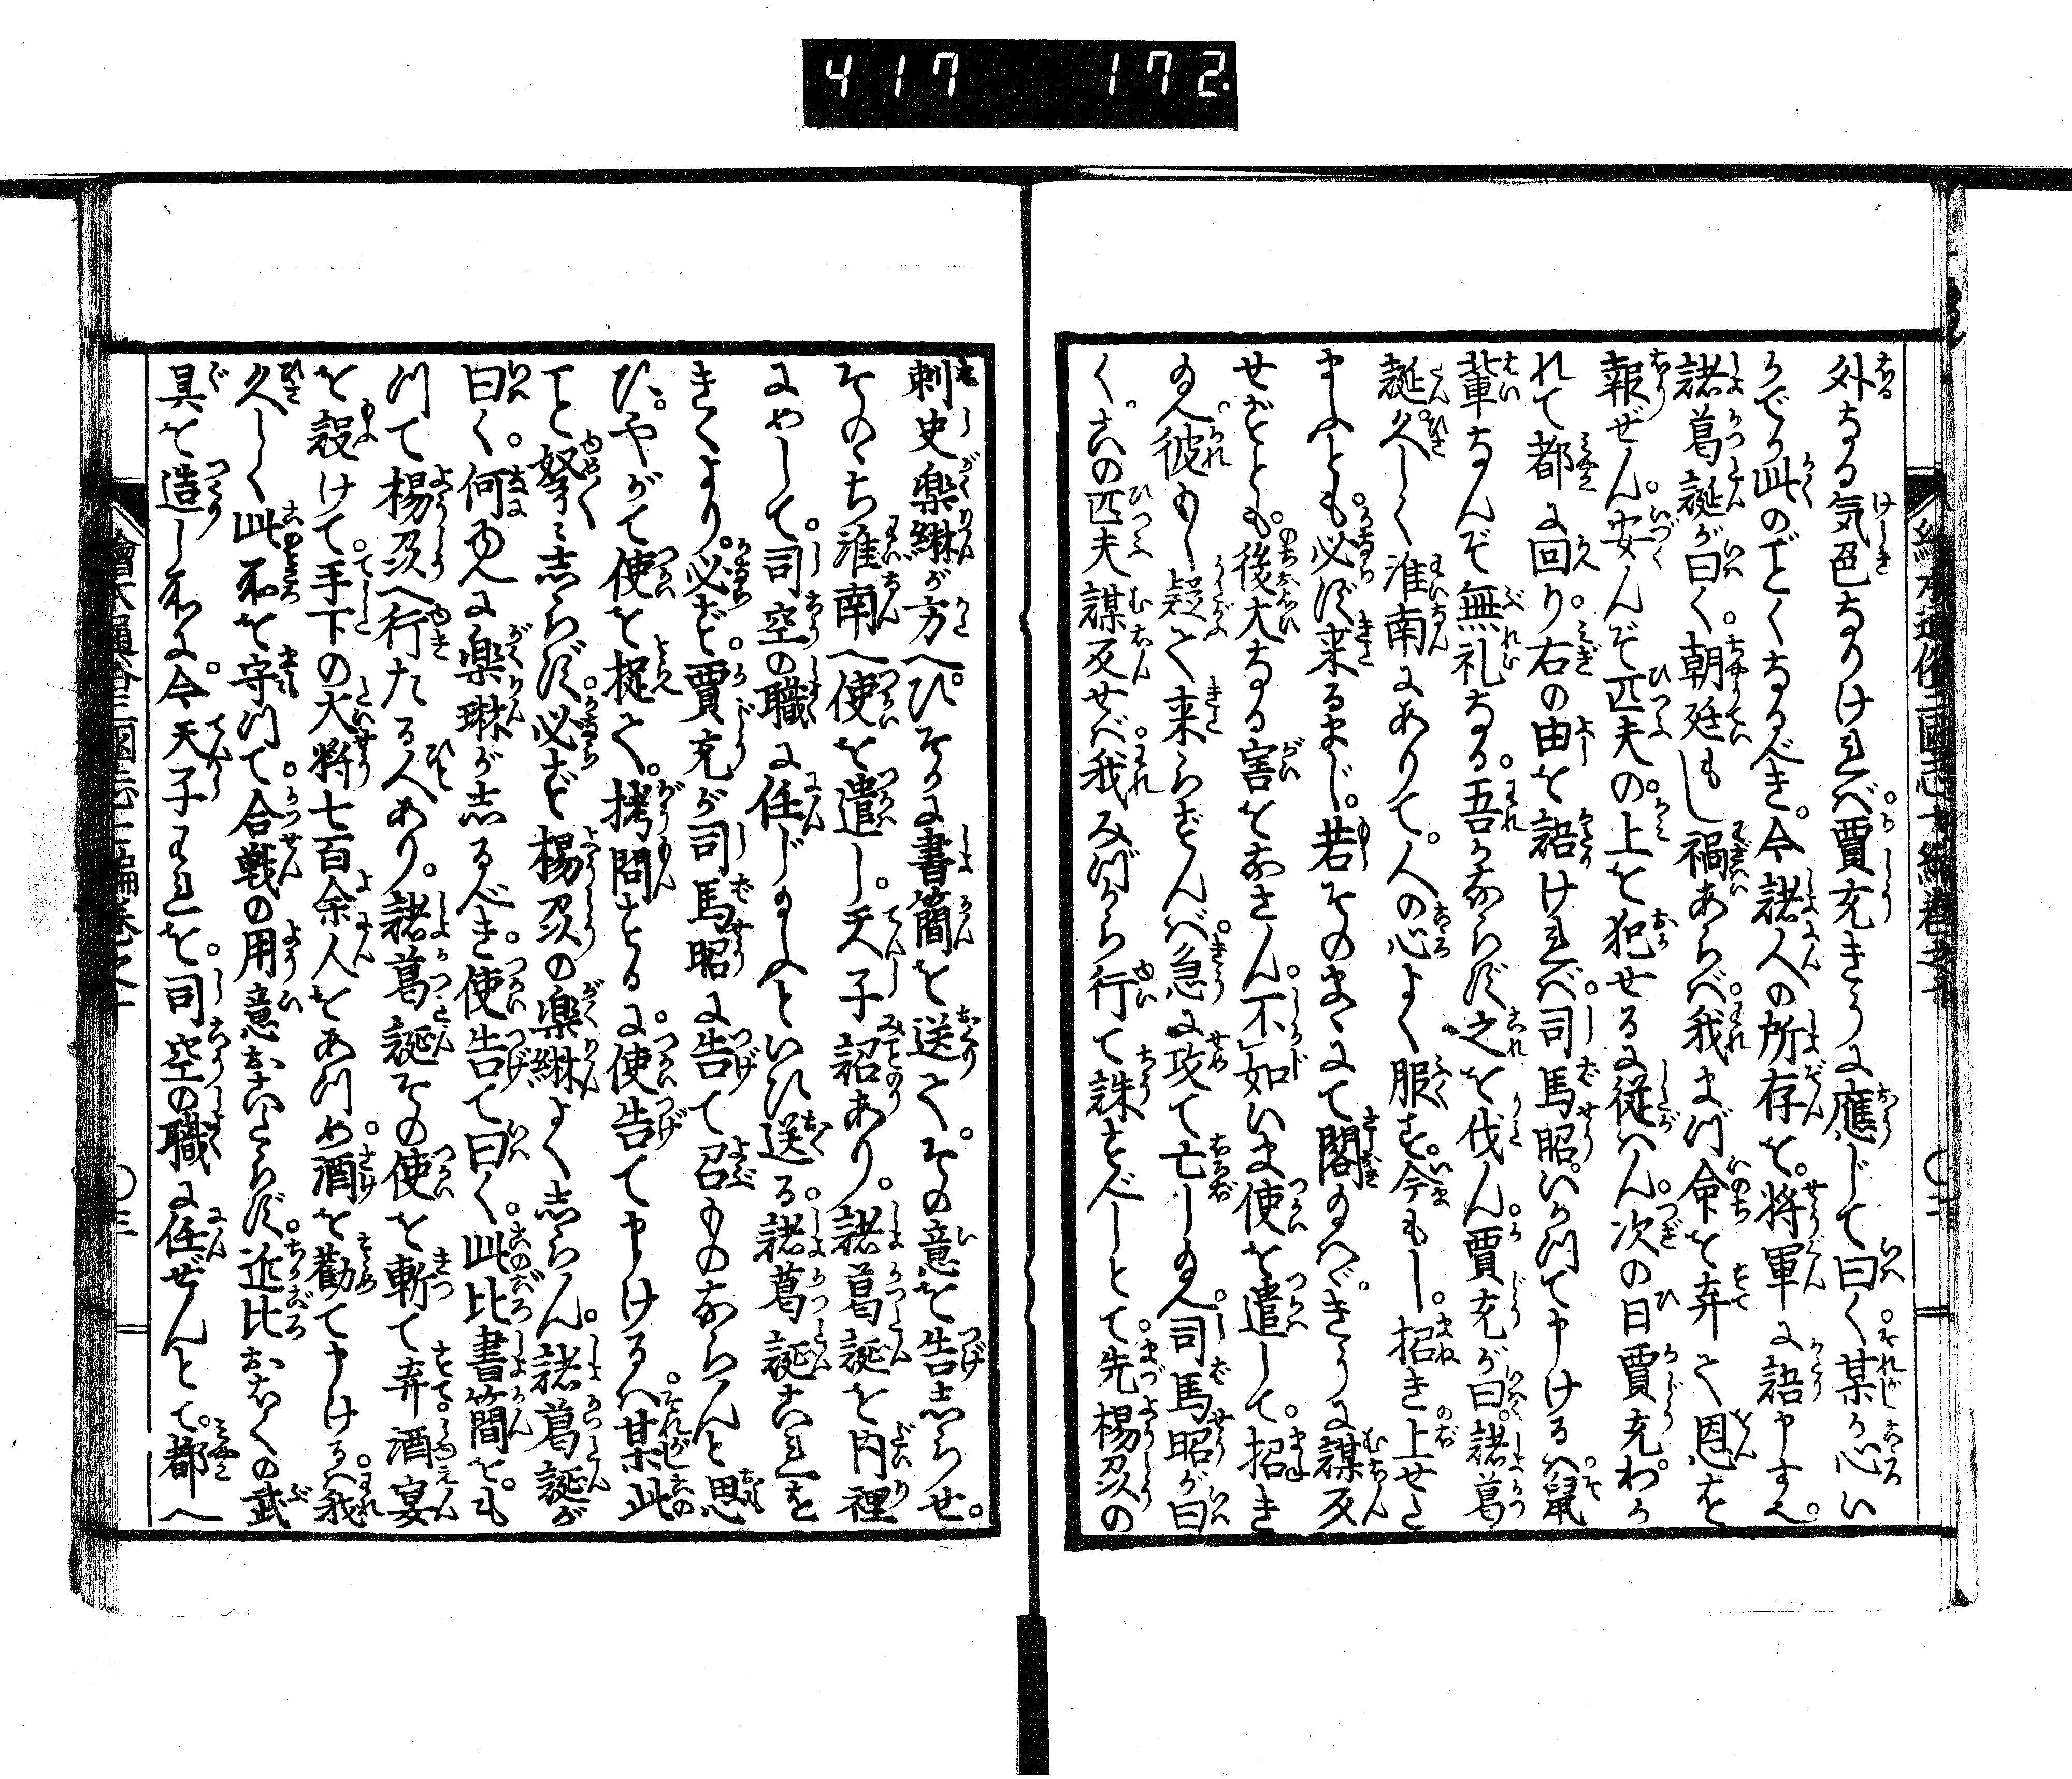 417 172.
外なる気色なりけれバ。賈充きうに應じて曰く。某が心い
かでか此のごとくなるべき。今諸人の所存を。将軍に語申すへ。
諸葛誕が曰く。朝廷もし禍あらバ。我まづ命を弃て恩を
報ぜん。安んぞ匹夫の。上を犯せるに従はん。次の日賈充わか
れて都に回り。右の由を語けれバ。司馬昭いかつて申けるハ。鼠
輩なんぞ無礼なる。吾かならず之を伐ん。賈充が曰。諸葛
誕。久しく淮南にありて。人の心よく服す。今もし。招き上せた
まふとも。必ず来るまじ。若そのまゝにて閣たまへバ。きうに謀反
せずとも。後大なる害をなさん。不如いま使を遣して。招き
たまへ。彼もし疑て来らずんバ。急に攻て亡したまへ。司馬昭が曰
く。この匹夫謀反せバ。我みづから行て誅すべしとて。先楊𬘭の
刺史楽綝が方へ。ひそかに書簡を送て。その意を告しらせ。
そのゝち淮南へ使を遣し。天子詔あり。諸葛誕を内裡
にめして。司空の職に任じたまふといひ送る。諸葛誕これを
きくより。必ず。賈充が司馬昭に告て召ものならんと思
ひ。やがて使を捉て。拷問するに。使告て申けるハ。某此
こと努々しらず。必ず楊𬘭の楽綝よくしらん。諸葛誕が
曰く。何ゆへに楽琳がしるべき。使告て曰く。此比書簡を。も
つて楊𬘭へ行たる人あり。諸葛誕その使を斬て弃。酒宴
を設けて。手下の大将七百余人をあつめ。酒を勸て申けるハ。我
久しく此所を守つて。合戦の用意おこたらず。近比おほくの武
具を造し所に。今天子われを。司空の職に任ぜんとて。都へ